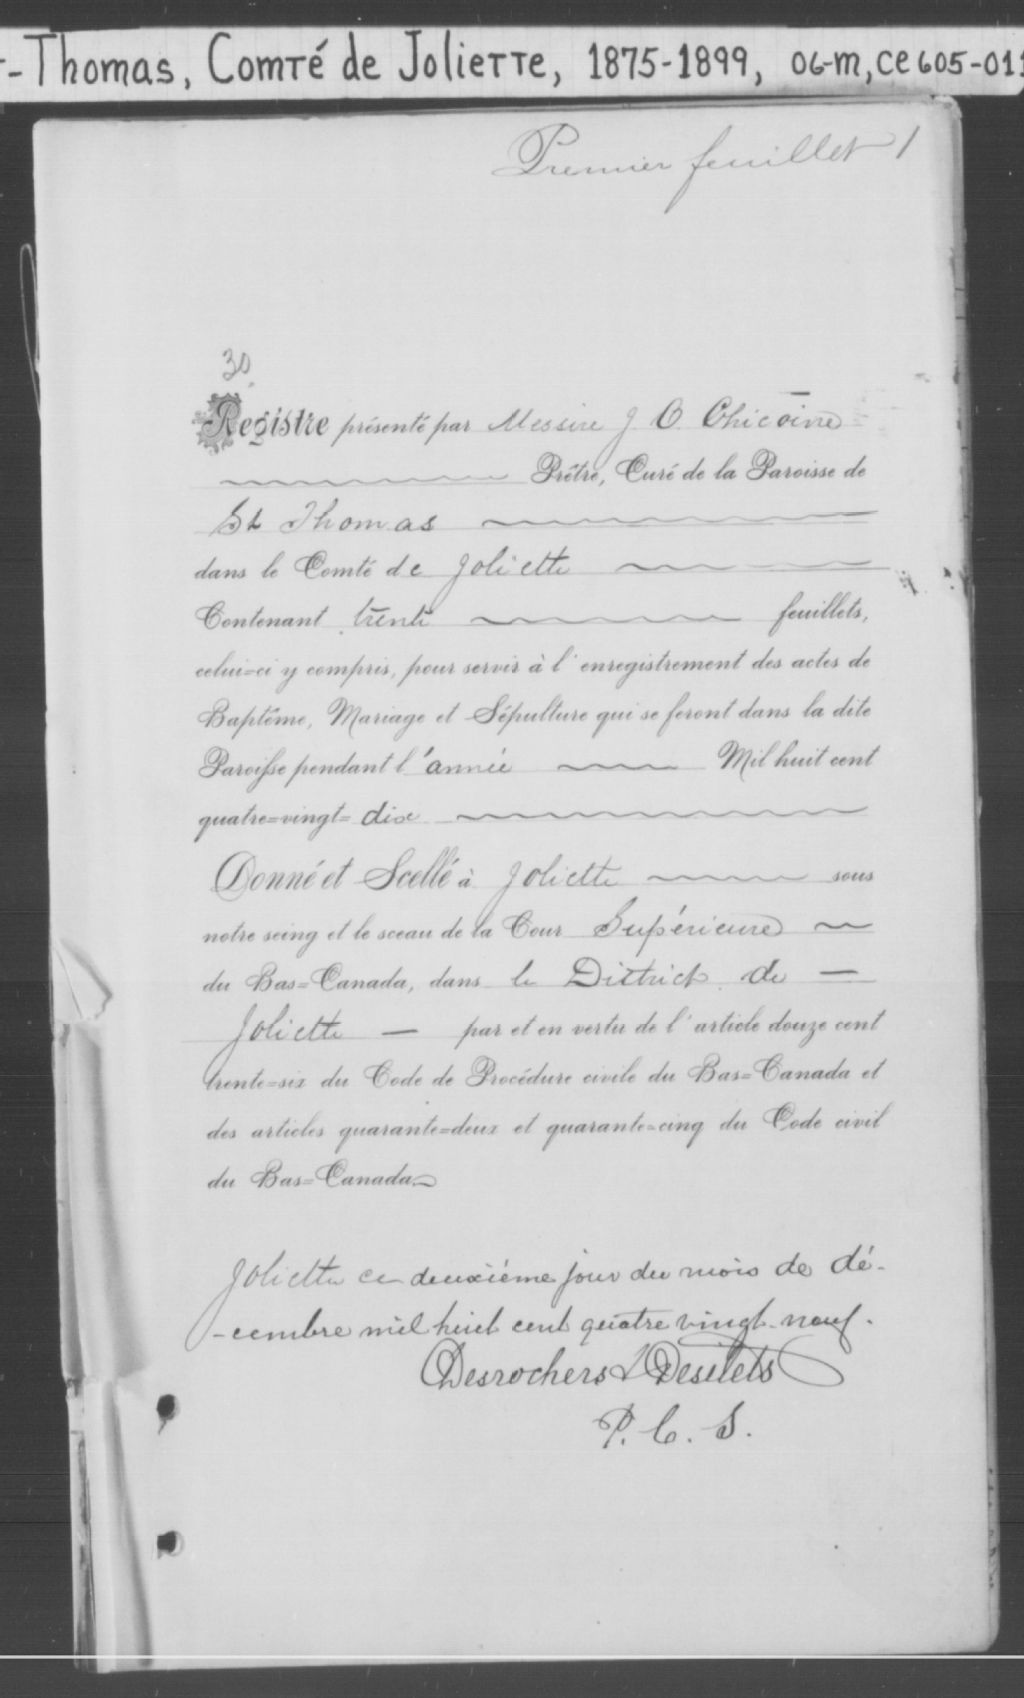 -Thomas, Comté de Joliette, 1875-1899, 06-M, CE605-011
Premier feuillet 1
30
Registre présenté par Messire J O Chicoine
Prêtre, Curé de la Paroisse de
St Thomas
dans le Comté de Joliette
Contenant trente feuillets,
celui=ci y compris, pour servir à l'enregistrement des actes de
Baptême, Mariage et Sépulture qui se feront dans la dite
Paroisse pendant l'année Mil huit cent
quatre=vingt= dix
Donné et Scellé à Joliette sous
notre seing et le sceau de la Cour Supérieure
du Bas=Canada, dans le District de
Joliette par et en vertu de l'article douze cent
trente=six du Code de Procédure civile du Bas=Canada et
des articles quarante=deux et quarante=cinq du Code civil
du Bas=Canada
Joliette ce deuxième jour du mois de dé-
-cembre mil huit cent quatre vingt-neuf.
Desrochers & Desilets
P. C. S.